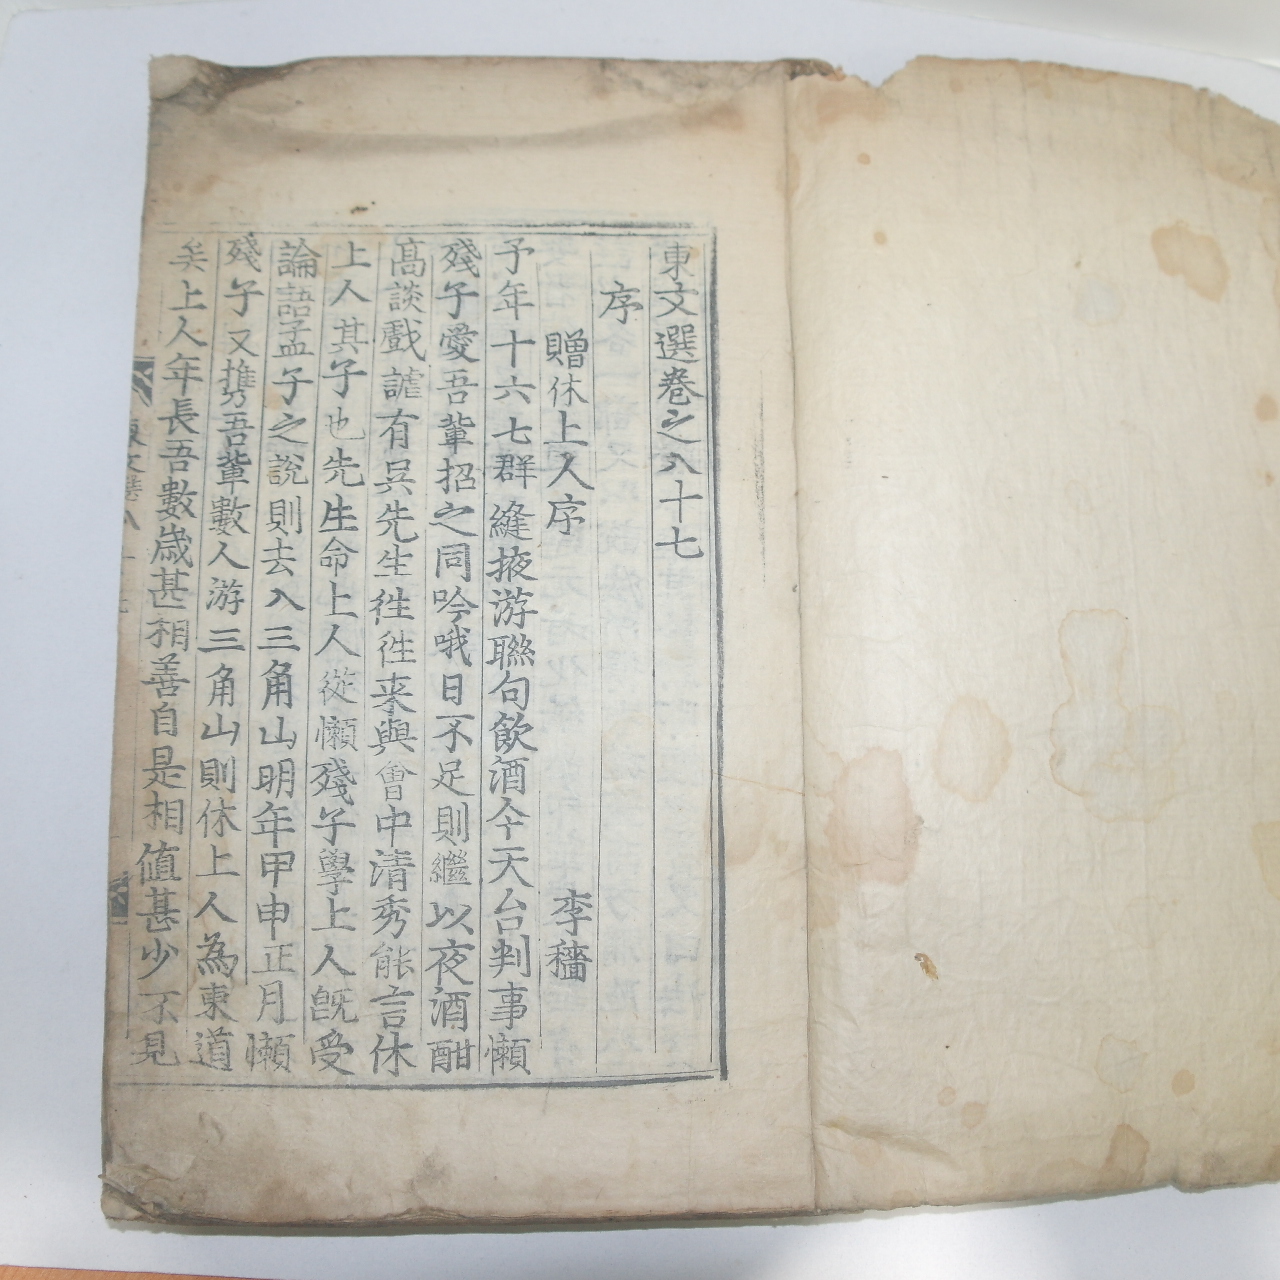 東文選卷之八十七
序
贈休上人序　李穡
予年十六七群縫掖游聯句飲酒今天台判事懶
殘子愛吾輩招之同吟哦日不足則繼以夜酒酣
高談戲謔有吳先生徃徃来與會中清秀能言休
上人其子也先生命上人從懶殘子學上人旣受
論語孟子之說則去入三角山明年甲申正月懶
殘子又携吾輩數人游三角山則休上人為東道
矣上人年長吾數歲甚相善自是相值甚少不見
東文選八十七